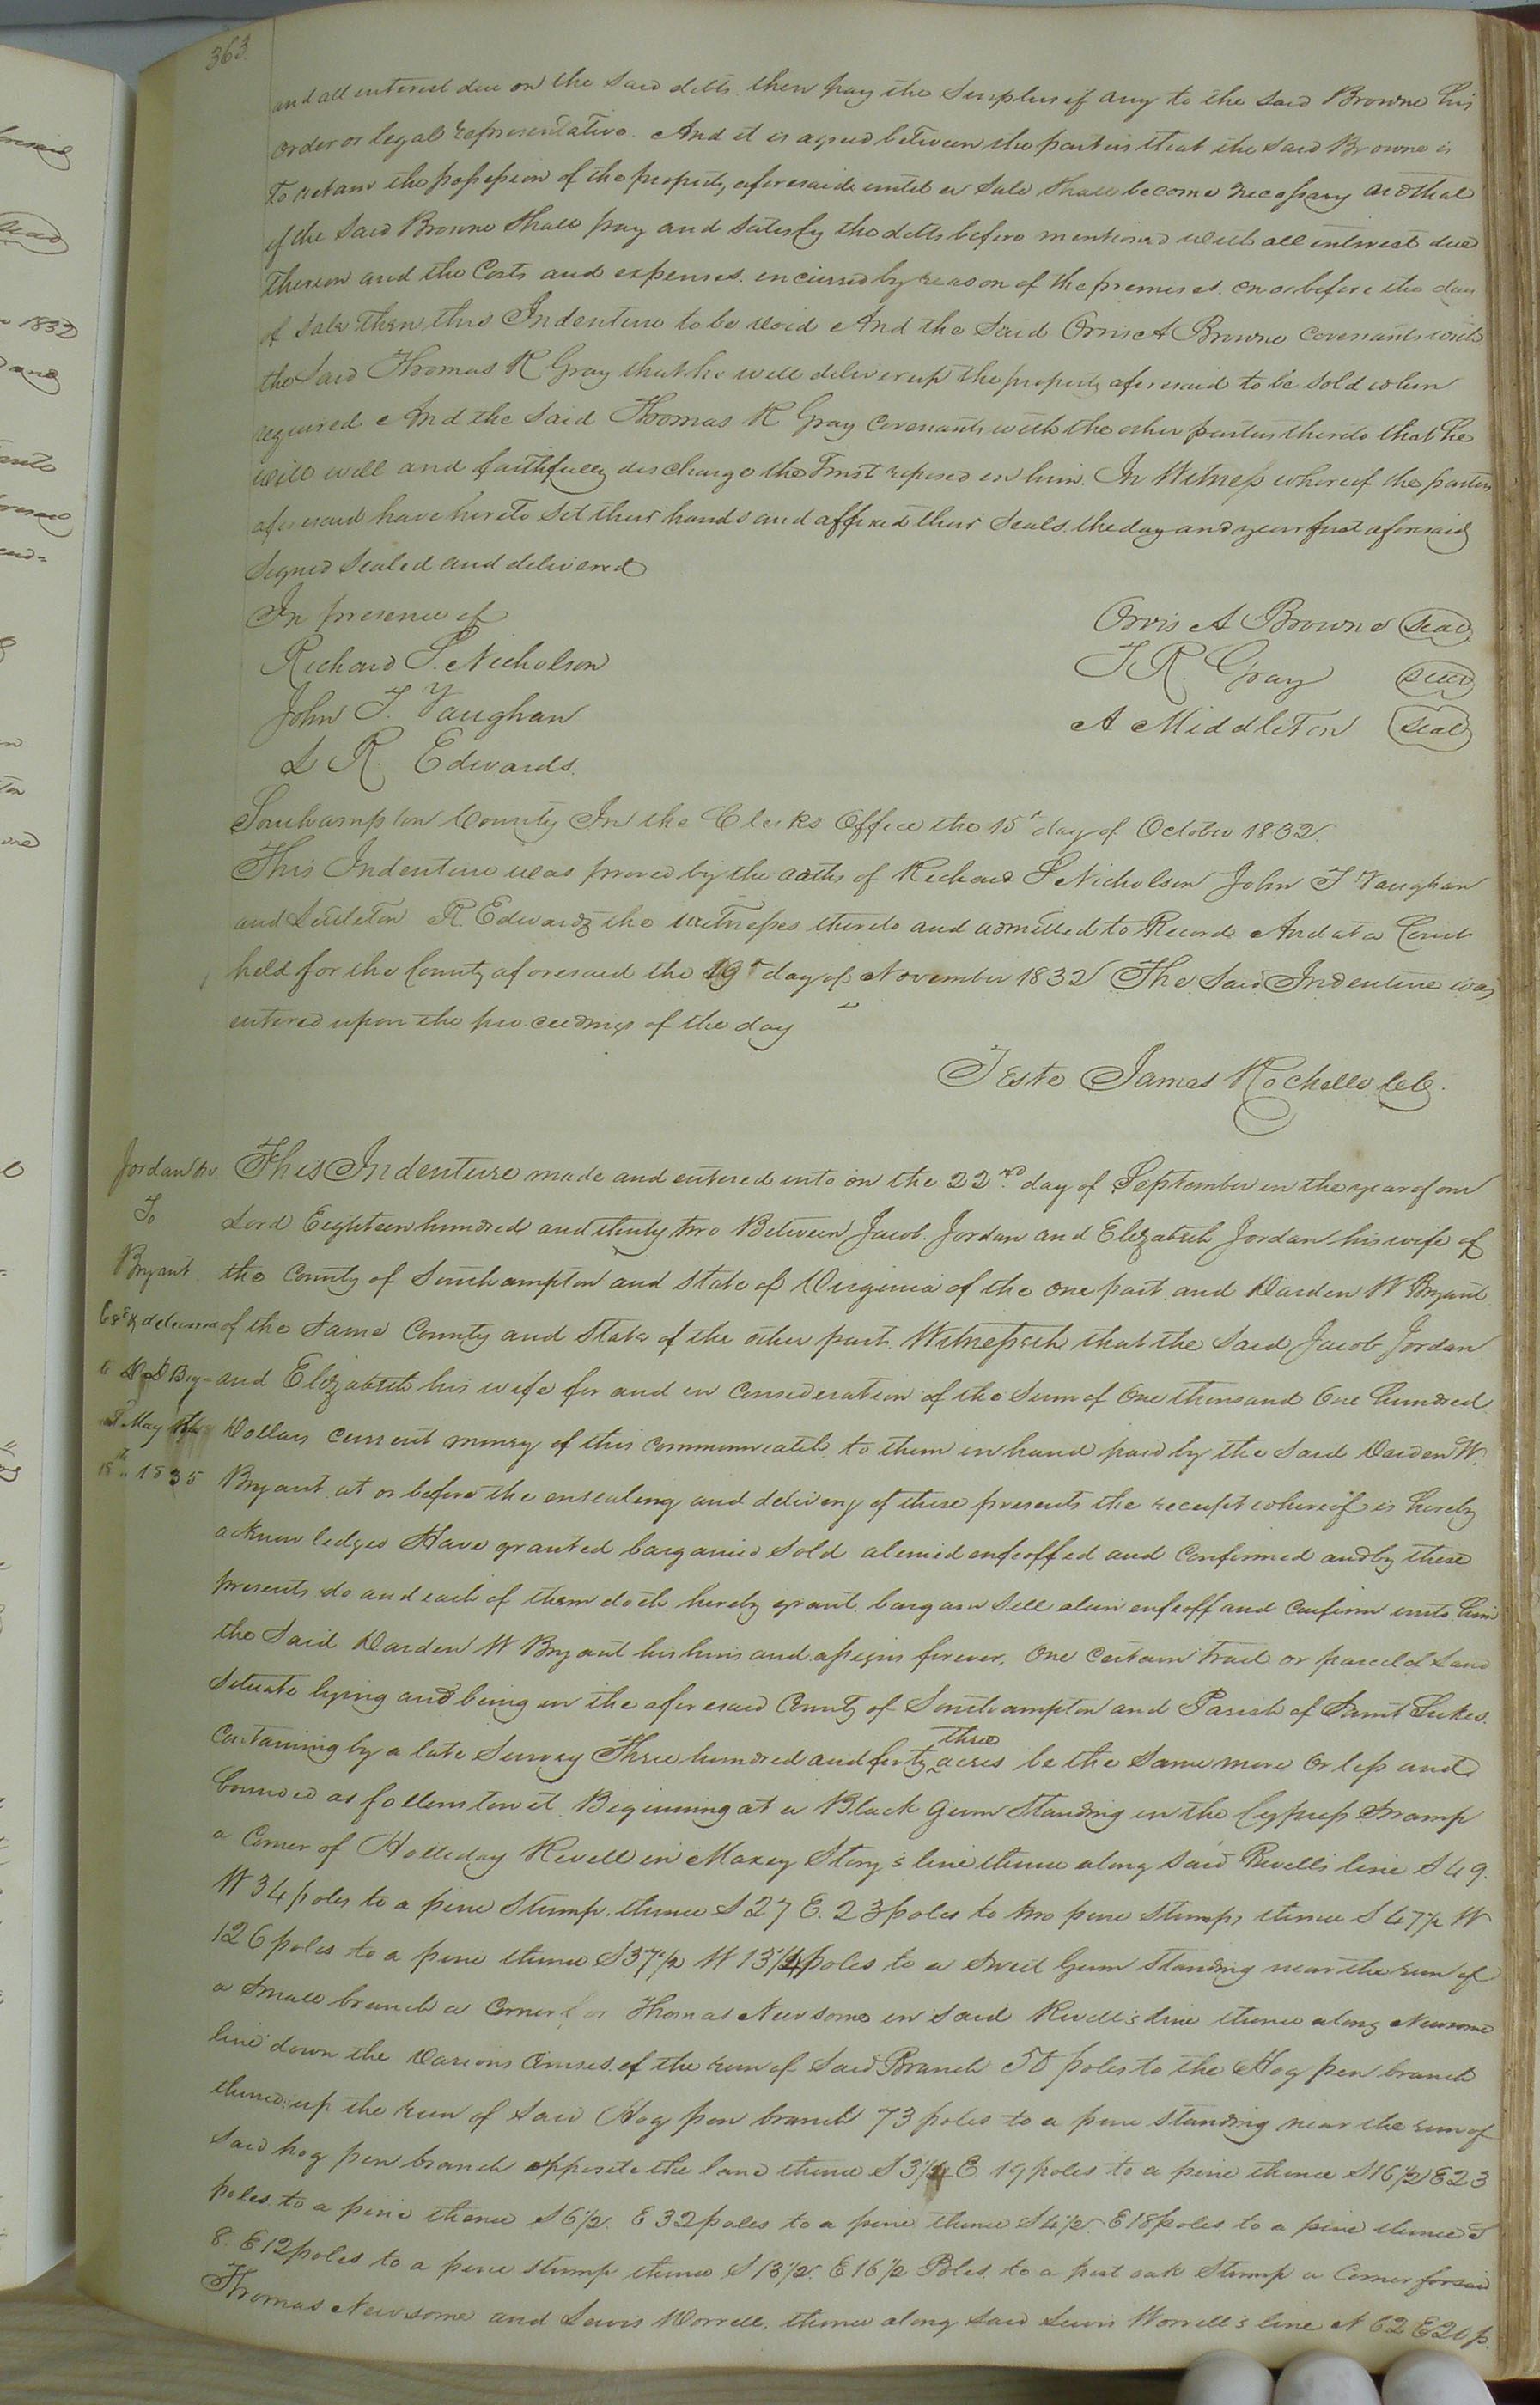 363.
and all interest due on the said debts then pay the Surplus if any to the said Browne his
order or legal representative. And it is agreed between the parties that the said Browne is
To retain the possession of the property aforesaid until a Sale shall become necessary and that
if the Said Browne shall pay and satisfy the debts before mentioned with all interest due
thereon and the Costs and expenses incurred by reason of the premises on or before the day
of Sale then this Indenture to be void And the Said Orris A Browne covenants with
the Said Thomas R Gray that he will deliver up the property aforesaid to be sold when
required And the Said Thomas R Gray Covenants with the other parties thereto that he
will well and faithfully discharge the Trust reposed in him. In Witness whereof the parties
aforesaid have hereto Set their hands and affixed their Seals the day and year first aforesaid
Signed Sealed and delivered
In presence of
Orris A Browne seal
Richard S. Nicholson
T R. Gray seal
John T. Vaughan
A Middleton seal
L R. Edwards.
Southampton County In the Clerks Office the 15th day of October 1832.
This Indenture was proved by the oaths of Richard S Nicholson John T Vaughan
and Littleton R Edwards the witnesses thereto and admitted to Record And at a Court
held for the County aforesaid the 19th day of November 1832 The Said Indenture was
entered upon the proceedings of the day
Teste James Rochelle CC.
Jordan &ux.
To
Bryant
delivered
May
18th 1835
This Indenture made and entered into on the 22nd. day of September in the year of our
Lord Eighteen hundred and thirty two Between Jacob Jordan and Elizabeth Jordan his wife of
the County of Southampton and state of Virginia of the one part and Darden W Bryant
of the Same County and State of the other part. Witnesseth that the Said Jacob Jordan
and Elizabeth his wife for and in Consideration of the Sum of One thousand One hundred
Dollars current money of this commonwealth to them in hand paid by the Said Darden W.
Bryant at or before the ensealing and delivery of these presents the receipt whereof is hereby
acknowledged Have granted bargained sold aliened enfeoffed and Confirmed and by these
presents do and each of them doth hereby grant bargain Sell alien enfeoff and Confirm unto him
the Said Darden W Bryant his heirs and assigns forever, One Certain tract or parcel of Land
Situate lying and being in the aforesaid County of Southampton and Parish of Saint Lukes.
three
Containing by a late Survey Three hundred and forty acres be the Same more Or less and
bounded as follows towit Beginning at a Black Gum Standing in the Cypress Swamp
a Corner of Holliday Revell in Maxey Story's line thence along said Revell's line S 49.
W 34 poles to a pine Stump. thence S 27 E. 23 poles to two pine Stumps thence S 47½ W
126 poles to a pine thence S37½ W 13¼ poles to a Sweet Gum Standing near the run of
a Small branch a Corner for Thomas Newsome in Said Revell's line thence along Newsome
line down the Various Courses of the run of Said Branch poles to the Hog pen branch
thence up the run of said Hog pen branch 73 poles to a pine standing near the run of
Said hog pen branch opposite the lane thence S 3¼ E. 19 poles to a pine thence S16½ E23
poles to a pine thence S6½. E 32 poles to a pine thence S 4½. E18 poles to a pine thence S
8. E12 poles to a pine stump thence S 13½. E16½ Poles to a post oak Stump a Corner for said
Thomas Newsome and Lewis Worrell, thence along said Lewis Worrell's line N 62 E20 p.